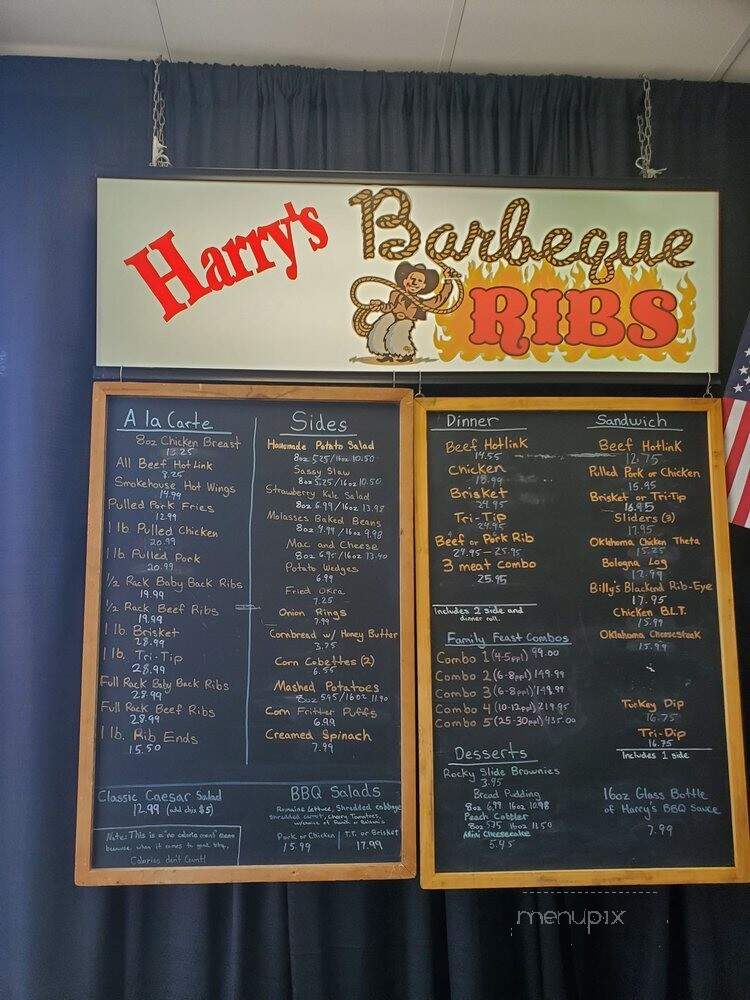 Harry's
Barbeque
RIBS
A la Carte
8oz Chicken Breast
All Beef Hotlink
8.25
Smokehouse Hot Wings
14.99
Pulled Pork Fries
12.99
1 lb Pulled Chicken
20.99
1 lb Pulled Pork
20.99
1/2 Rack Baby Back Ribs
19.99
1/2 Rack Beef Ribs
19.99
1 lb. Brisket
28.99
1 lb. Tri-Tip
28.99
Full Rack Baby Back Ribs
28.99
Full Rack Beef Ribs
28.99
1 lb. Rib Ends
15.50
Sides
Homemade Potato Salad
8oz 5.25/16oz 10.50
Sassy Slaw
8oz 5.25/16oz 10.50
Strawberry Kale Salad
8oz 6.99/16oz 13.98
Molasses Baked Beans
8oz 4.99/16oz 9.98
Mac and Cheese
8oz 6.95/16oz 13.90
Potato Wedges
6.99
Fried Okra
7.25
Onion Rings
7.99
Cornbread w/ Honey Butter
3.75
Corn Cobettes (2)
6.55
Mashed Potatoes
8oz 5.95/16oz 11.90
Corn Fritter Puffs
6.99
Creamed Spinach
7.99
Classic Caesar Salad
12.99 (add chix $5)
Note: This is a no calorie count menu
because, when it comes to good bbq,
Calories don't Count!
BBQ Salads
Romaine lettuce, Shredded cabbage
shredded carrot, Cherry Tomatoes,
w/choice of Ranch or Balsamic
Pork or Chicken
15.99
T.T. or Brisket
17.99
Dinner
Beef Hotlink
14.55
Chicken
18.99
Brisket
24.95
Tri-Tip
24.95
Beef or Pork Rib
24.95 - 25.95
3 meat combo
25.95
Includes 2 side and
dinner roll.
Family Feast Combos
Combo 1 (4-5ppl) 99.00
Combo 2 (6-8ppl) 149.99
Combo 3 (6-8ppl) 149.99
Combo 4 (10-12ppl) 219.95
Combo 5 (25-30ppl) 435.00
Desserts
Rocky Slide Brownies
3.95
Bread Pudding
8oz 6.99 16oz 10.98
Peach Cobbler
8oz 5.75 16oz 11.50
Mini Cheesecake
5.45
Sandwich
Beef Hotlink
12.75
Pulled Pork or Chicken
15.95
Brisket or Tri-Tip
16.95
Sliders (3)
17.95
Oklahoma Chicken Theta
15.25
Bologna Log
12.99
Billy's Blackend Rib-Eye
17.95
Chicken B.L.T.
15.99
Oklahoma Cheesesteak
15.99
Turkey Dip
16.75
Tri-Dip
16.75
Includes 1 side
16oz Glass Bottle
of Harry's BBQ Sauce
7.99
menupix